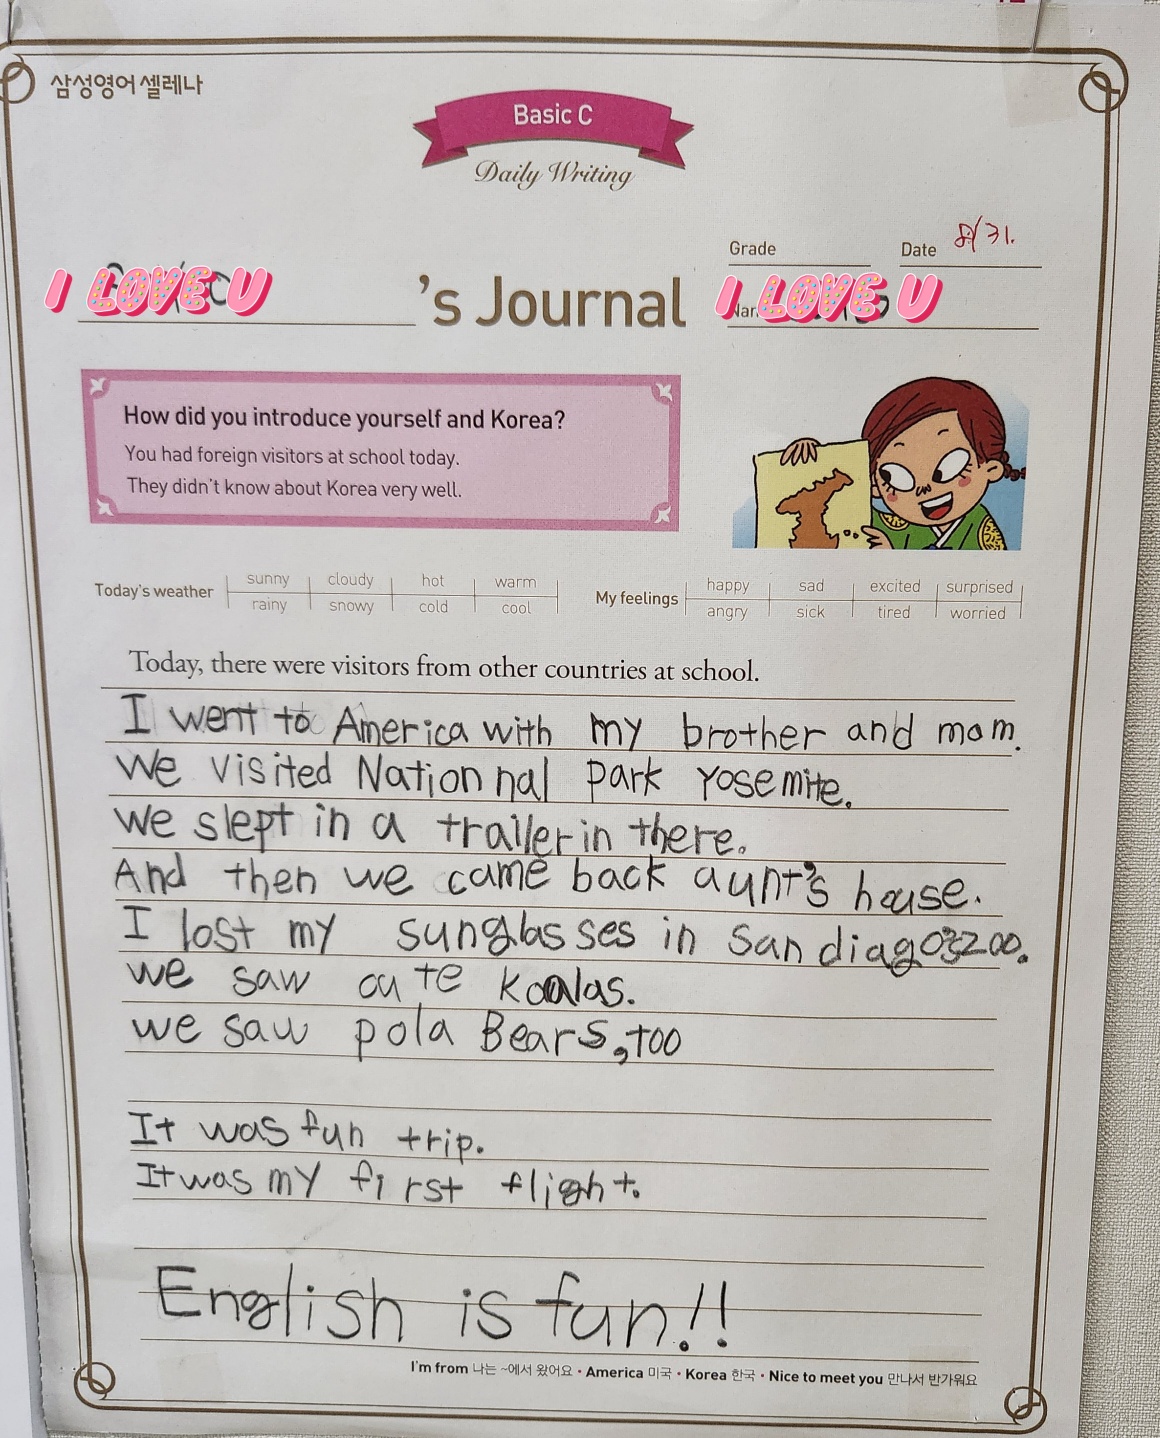 삼성영어 셀레나
Basic C
Daily Writing
Grade
Date 8/31.
I LOVE U 's Journal I LOVE U
How did you introduce yourself and Korea?
You had foreign visitors at school today.
They didn't know about Korea very well.
Today's weather sunny cloudy hot warm
rainy snowy cold cool
My feelings happy sad excited surprised
angry sick tired worried
Today, there were visitors from other countries at school.
I went to America with my brother and mom.
We visited Nationnal park Yosemite.
We slept in a trailer in there.
And then we came back aunt's house.
I lost my sunglasses in San diago
we saw cute koalas.
we saw pola Bears, too
It was fun trip.
It was my first flight.
English is fun!!
I'm from 나는 ~에서 왔어요 • America 미국 • Korea 한국 • Nice to meet you 만나서 반가워요